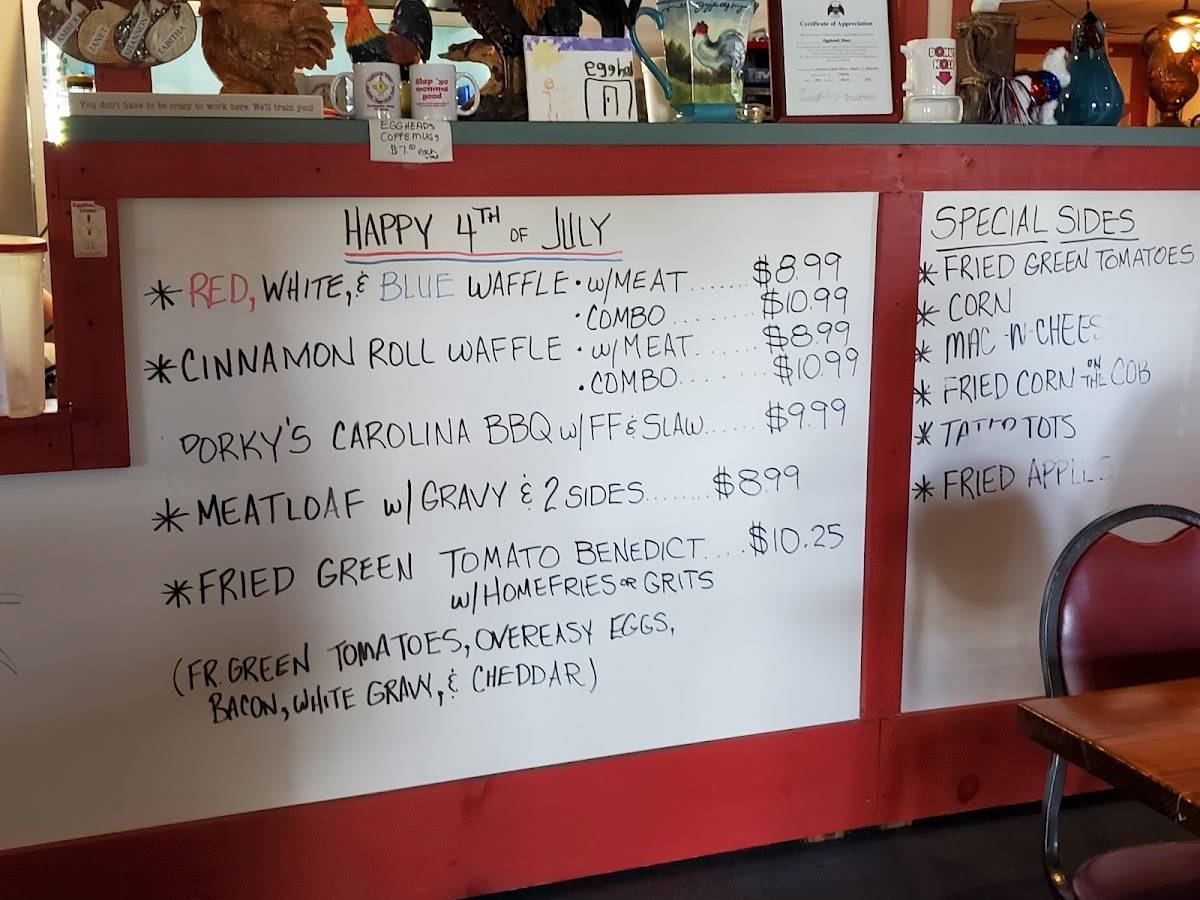 AMBER
JANET
TABITHA
You don't have to be crazy to work here. We'll train you!
Slap 'ya
momma
good
EGGHEADS
COFFE MUGS
$7.00 each
eggh
Certificate of Appreciation
DONUT
NOW
HAPPY 4TH OF JULY
* RED, WHITE, & BLUE WAFFLE • W/MEAT....... $8.99
• COMBO........ $10.99
* CINNAMON ROLL WAFFLE • W/MEAT....... $8.99
• COMBO........ $10.99
PORKY'S CAROLINA BBQ W/FF & SLAW...... $9.99
* MEATLOAF W/GRAVY & 2 SIDES........ $8.99
* FRIED GREEN TOMATO BENEDICT.... $10.25
W/HOMEFRIES OR GRITS
(FR. GREEN TOMATOES, OVEREASY EGGS,
BACON, WHITE GRAVY, & CHEDDAR)
SPECIAL SIDES
* FRIED GREEN TOMATOES
* CORN
* MAC-N-CHEES
* FRIED CORN ON THE COB
* TATTO TOTS
* FRIED APPLES